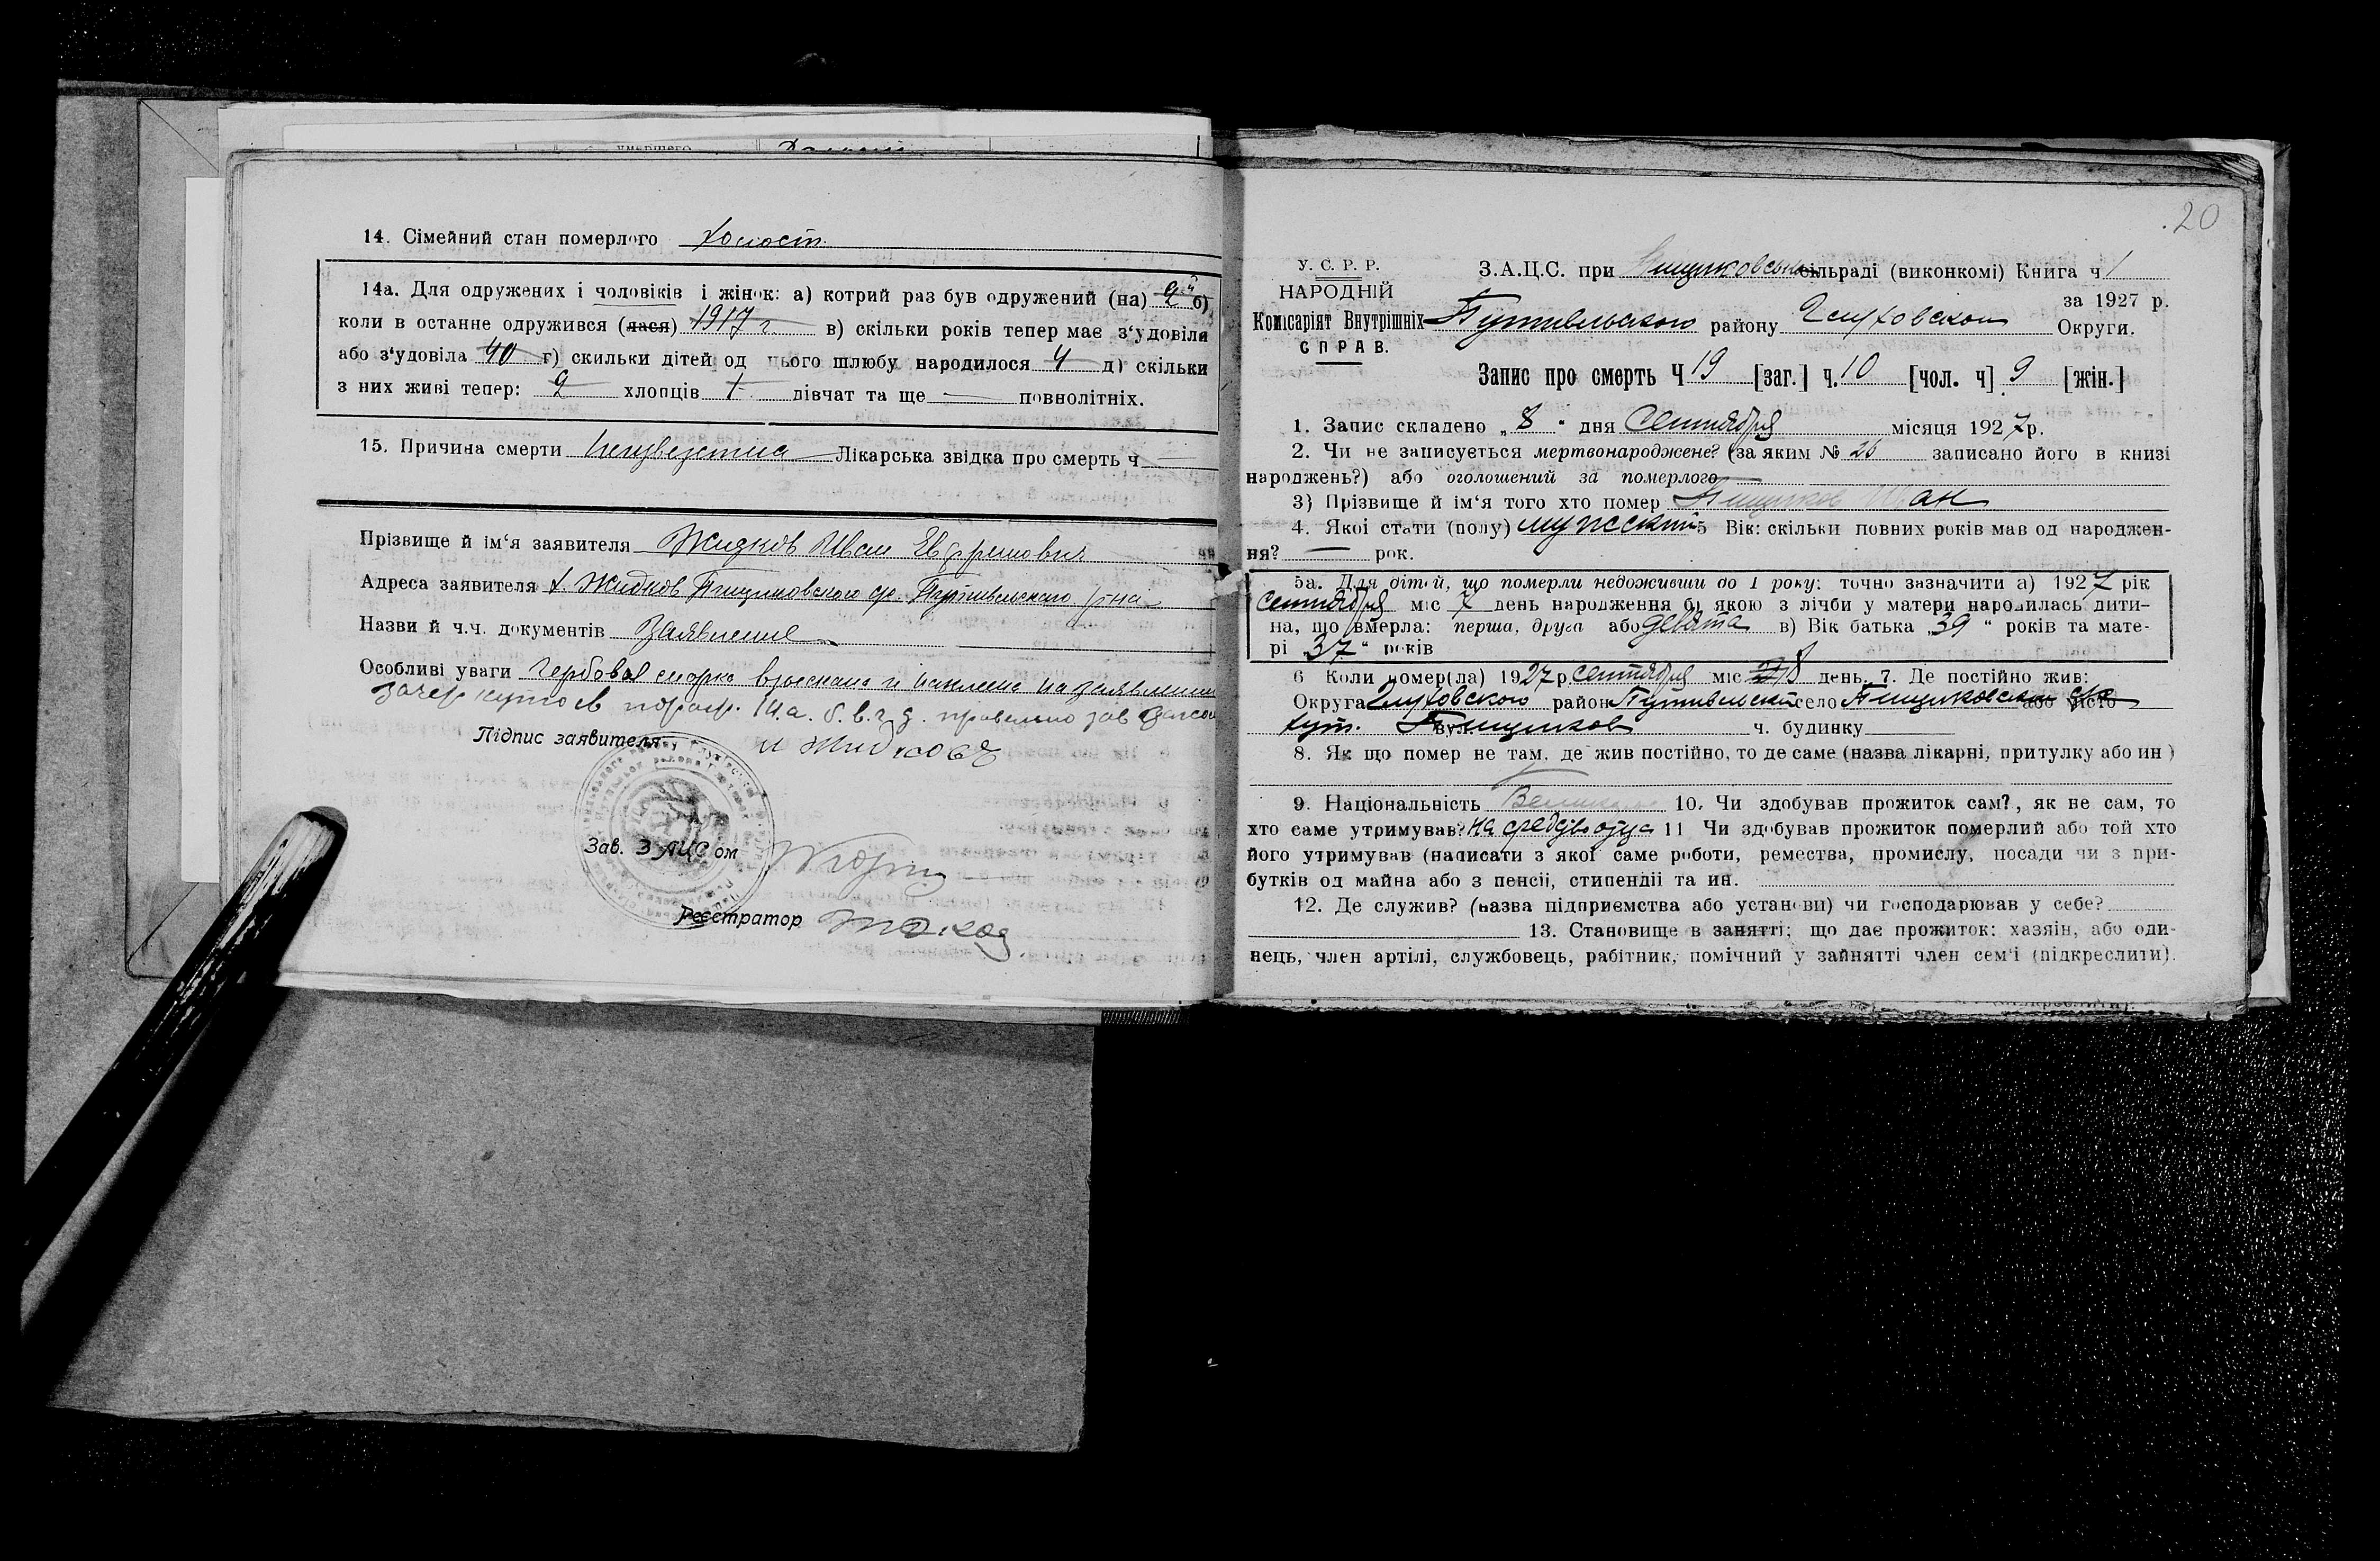 умершего
14. Сімейний стан померлого холост.
14а. Для одружених і чоловіків і жінок: а) котрий раз був одружений (на) 2й б)
коли в останне одружився (лася) 1917 г. в) скільки років тепер має з'удовіла
або з'удовіла 40 г) скильки дітей од цього шлюбу народилося 4 д) скільки
з них живі тепер: 2 хлопців 1 дівчат та ще — повнолітніх.
15. Причина смерти Неизвестна Лікарська звідка про смерть ч —
Прізвище й ім'я заявителя Жидков Иван Ефремович
Адреса заявителя х. Жидков Пищиковского с/с. Путивльского р/на
Назви й ч.ч. документів Заявление
Особливі уваги Гербовая марка взыскана и наклеена на заявлении
зачеркнуто в параф. 14.а. б. в. г. д. правельно зав
Підпис заявителя И Жидковъ
Зав. ЗАЦС ом
Реєстратор
20
У. С. Р. Р.
НАРОДНІЙ
Комісаріят Внутрішніх
СПРАВ.
З.А.Ц.С. при Пищиковськ сільраді (виконкомі) Книга ч 1
за 1927 р.
Путивльского району Глуховской Округи.
Запис про смерть Ч 19 [заг.] ч. 10 [чол. ч] 9 [жін.]
1. Запис складено „8“ дня Сентября місяця 1927 р.
2. Чи не записується мертвонароджене? (за яким № 26 записано його в книзі
народжень?) або оголошений за померлого
3) Прізвище й ім'я того хто помер Пищиков Иван
4. Якої стати (полу) мужской 5 Вік: скільки повних років мав од народжен-
ня? — рок.
5а. Для дітей, що померли недоживши до 1 року: точно зазначити а) 1927 рік
Сентября міс 7 день народження б) якою з лічби у матери народилась дити-
на, що вмерла: перша, друга або девята в) Вік батька „39“ років та мате-
рі „37“ років
6 Коли помер(ла) 1927 р. Сентября міс 8 день. 7. Де постійно жив:
Округа Глуховского район Путивльский село Пищиковский с/с або місто
хут. вул. Пищиков ч. будинку
8. Як що помер не там, де жив постійно, то де саме (назва лікарні, притулку або ин)
9. Національність 10. Чи здобував прожиток сам?, як не сам, то
хто саме утримував? На средсва отца 11 Чи здобував прожиток померлий або той хто
його утримував (написати з якої саме роботи, ремества, промислу, посади чи з при-
бутків од майна або з пенсії, стипендії та ин.
12. Де служив? (назва підприємства або установи) чи господарював у себе?
13. Становище в занятті; що дає прожиток: хазяїн, або оди-
нець, член артілі, службовець, рабітник, помічний у зайнятті член сем'ї (підкреслити).